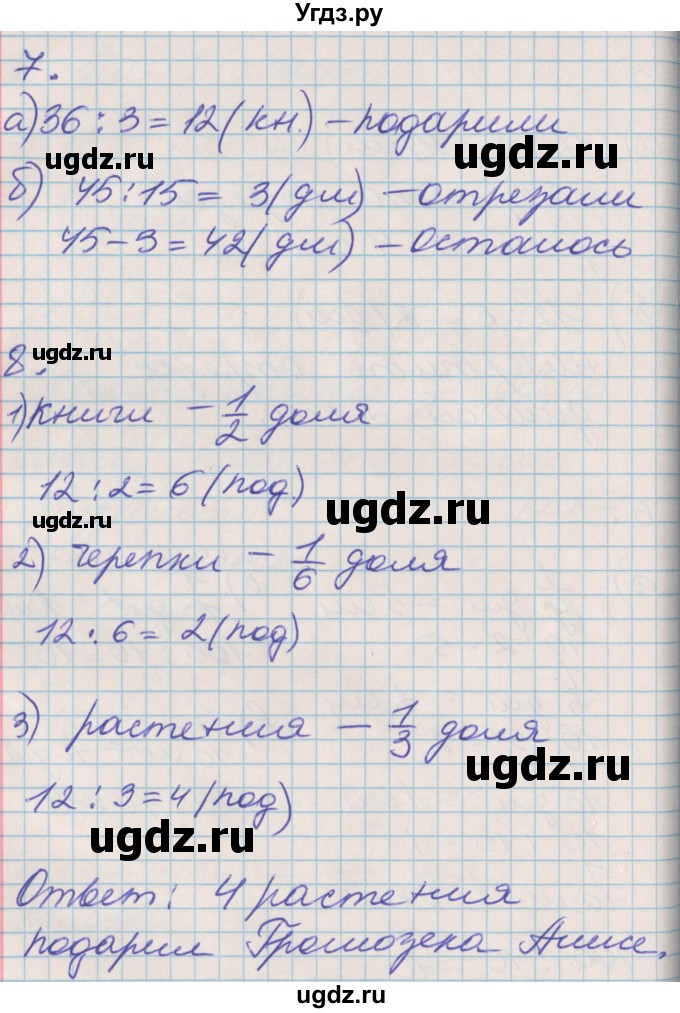 Угдз.ру
7.
а) 36 : 3 = 12 (кн.) – подарили
ugdz.ru ugdz.ru
б) 45 : 15 = 3 (дм) – отрезали
45 – 3 = 42 (дм) – осталось
ugdz.ru ugdz.ru
8.
ugdz.ru
1) книги – 1/2 доля
12 : 2 = 6 (под)
ugdz.ru ugdz.ru
2) черепки – 1/6 доля
12 : 6 = 2 (под)
3) растения – 1/3 доля
ugdz.ru
12 : 3 = 4 (под)
ugdz.ru
Ответ: 4 растения
подарил Громозека Алисе.
ugdz.ru